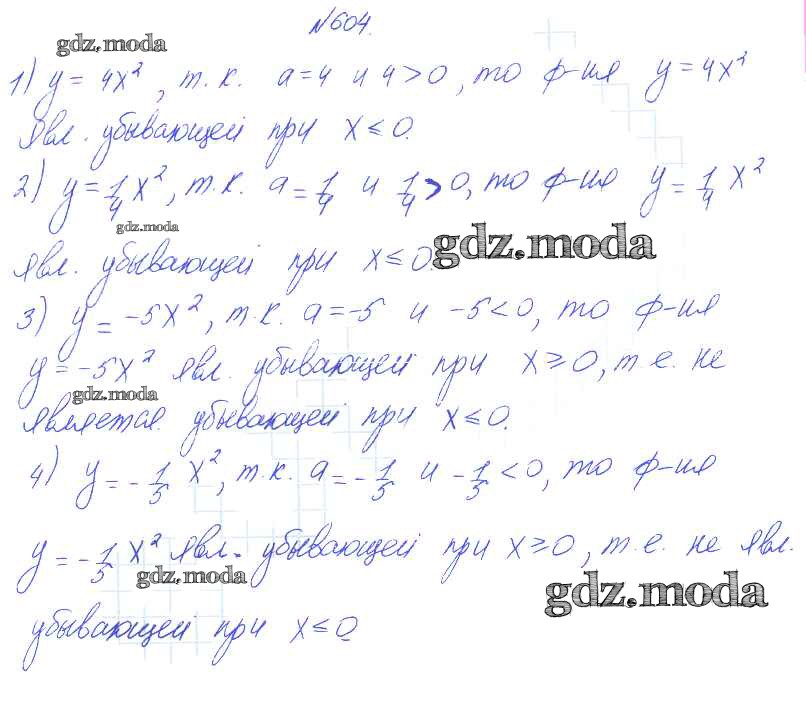 №604.
gdz.moda
1) y = 4x², т.к. a=4 и 4>0, то ф-ия y=4x²
явл. убывающей при x≤0.
2) y=1/4x², т.к. a=1/4 и 1/4>0, то ф-ия y=1/4x²
gdz.moda
gdz.moda
явл. убывающей при x≤0.
3) y=-5x², т.к. a=-5 и -5<0, то ф-ия
y=-5x² явл. убывающей при x≥0, т.е. не
gdz.moda
является убывающей при x≤0.
4) y=-1/5x², т.к. a=-1/5 и -1/5<0, то ф-ия
y=-1/5x² явл. убывающей при x≥0, т.е. не явл.
gdz.moda
gdz.moda
убывающей при x≤0